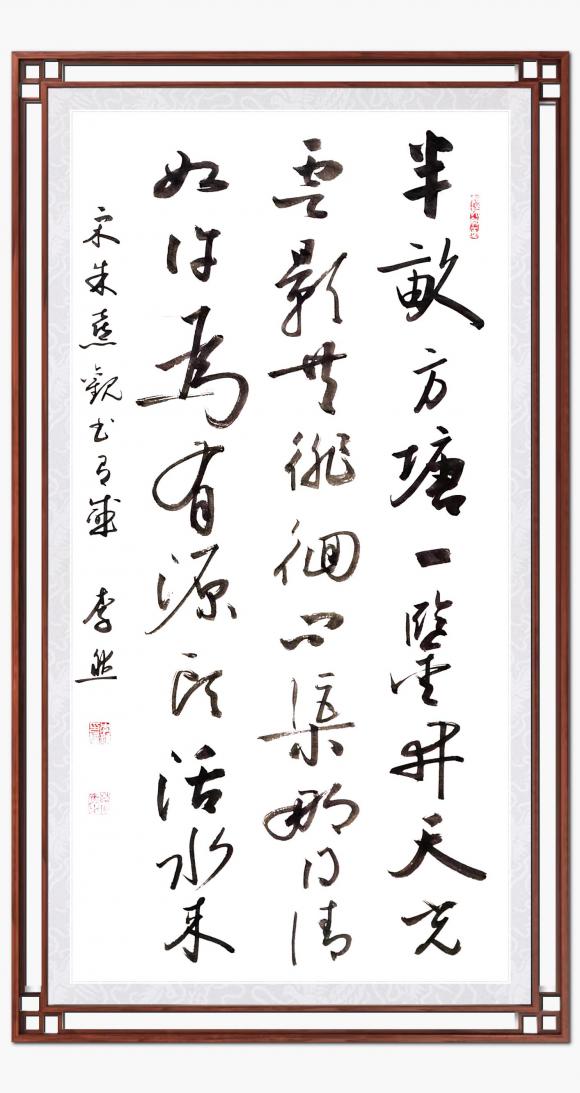 半畝方塘一鑒開天光
雲影共徘徊問渠那得清
如許為有源頭活水來
宋朱熹觀書有感 李